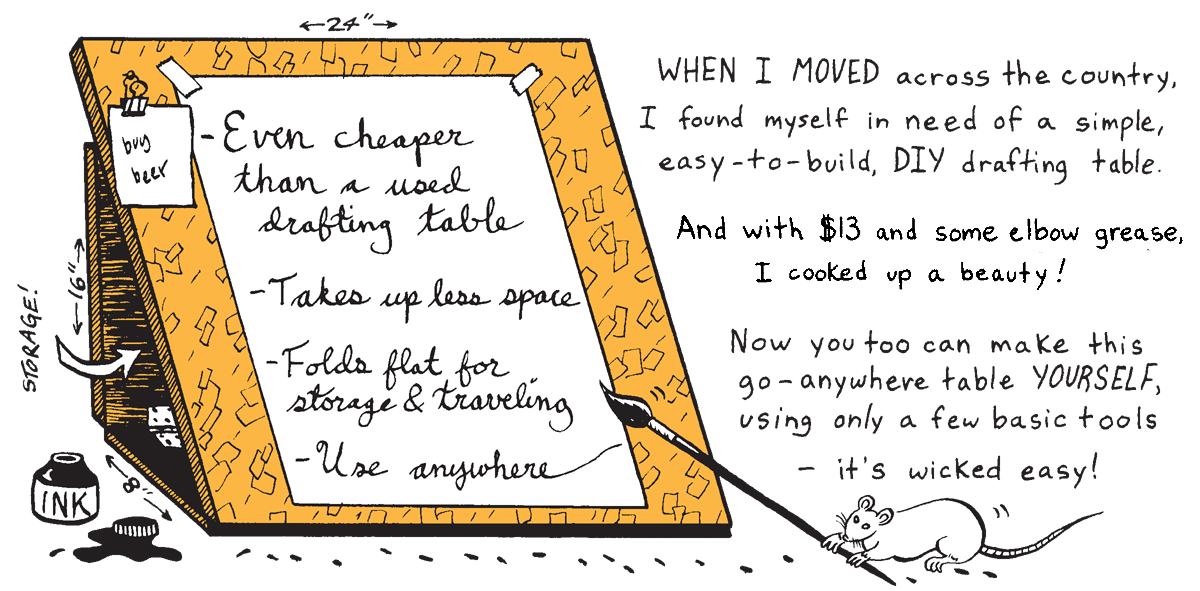 ←24"→
buy
beer
- Even cheaper
than a used
drafting table
- Takes up less space
- Folds flat for
storage & traveling
- Use anywhere
←16"→
STORAGE!
←8"→
INK
WHEN I MOVED across the country,
I found myself in need of a simple,
easy-to-build, DIY drafting table.
And with $13 and some elbow grease,
I cooked up a beauty!
Now you too can make this
go-anywhere table YOURSELF,
using only a few basic tools
- it's wicked easy!